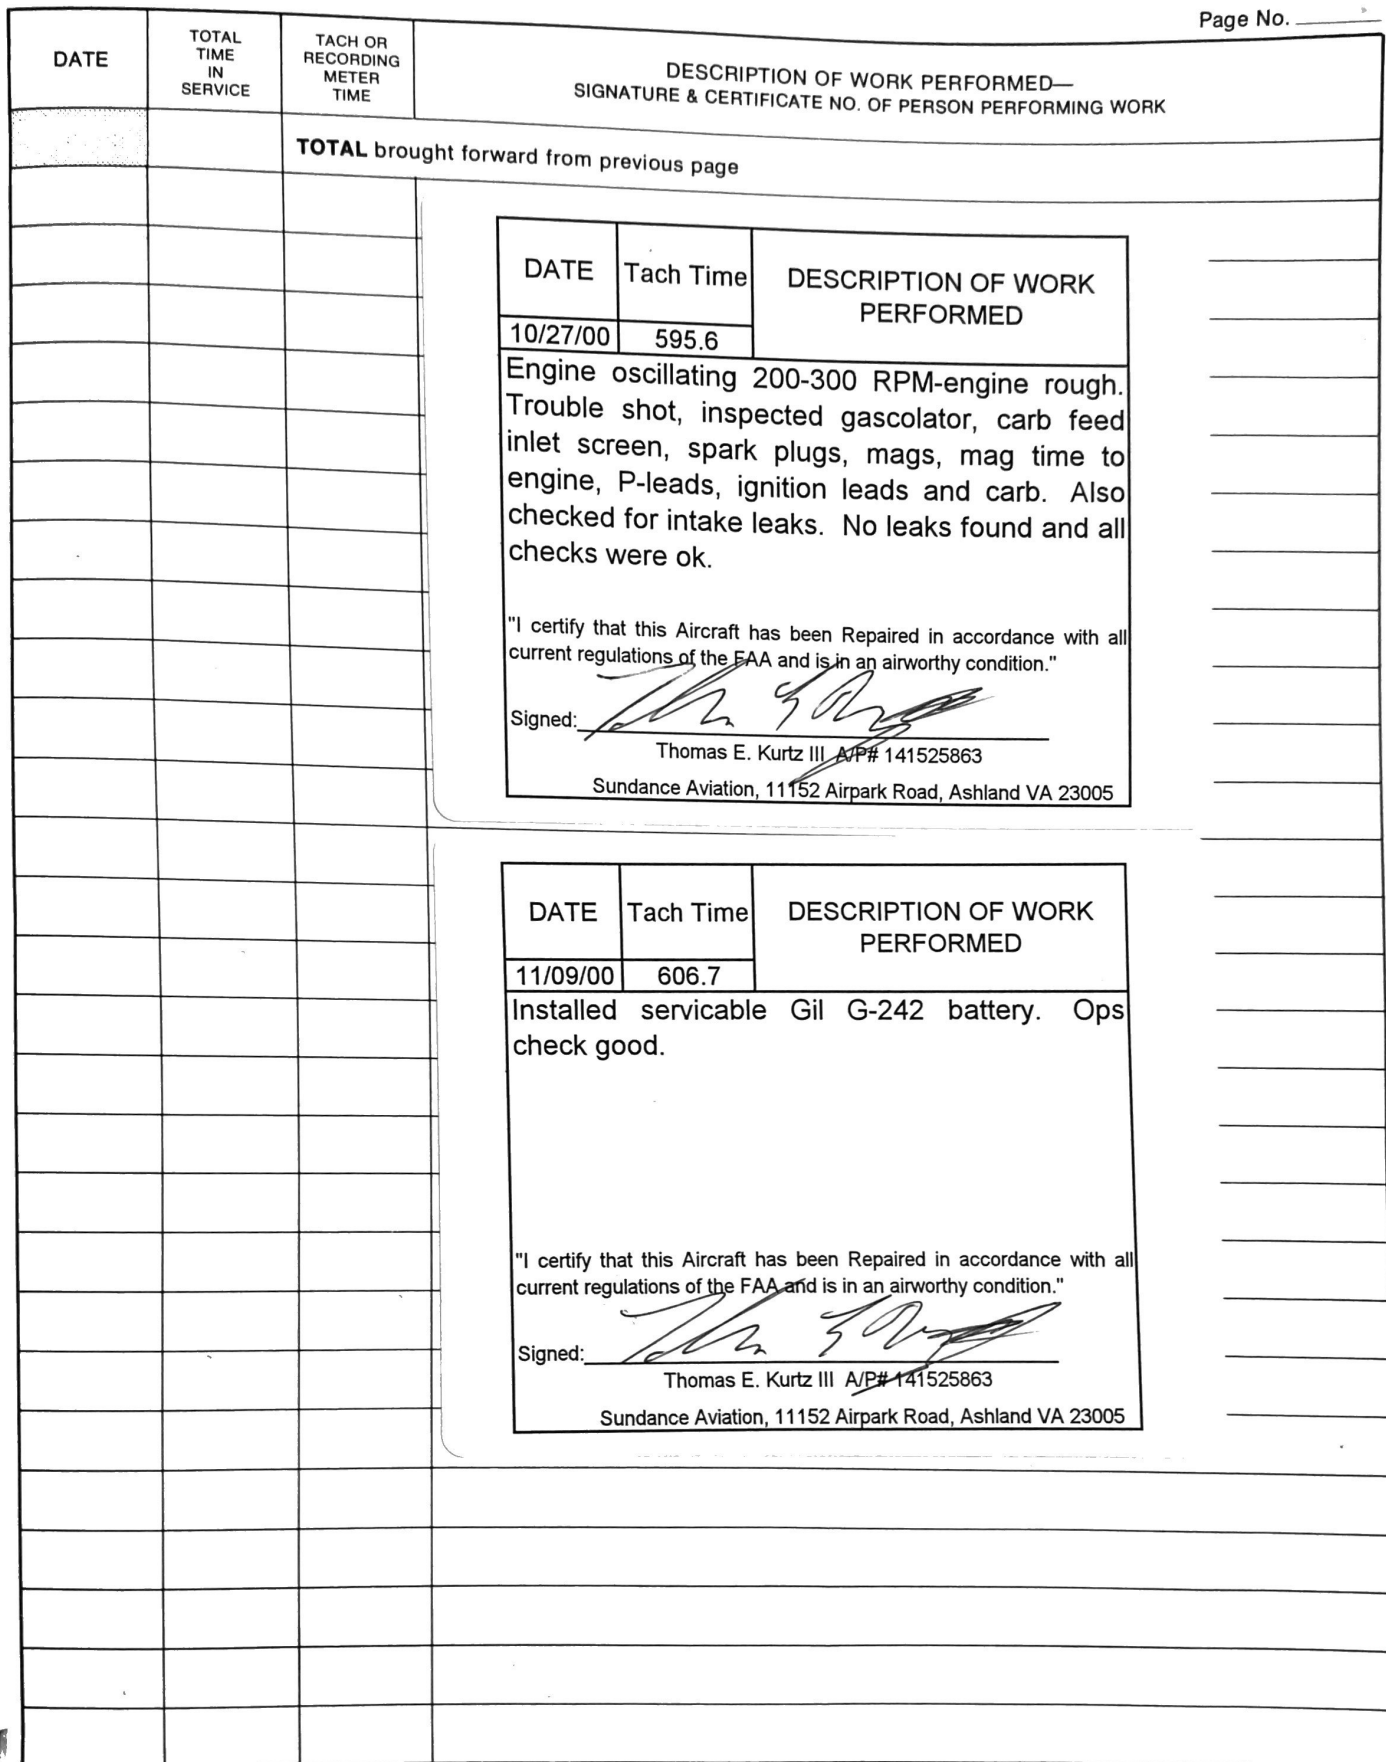 Page No.
DATE
TOTAL
TIME
IN
SERVICE
TACH OR
RECORDING
METER
TIME
DESCRIPTION OF WORK PERFORMED—
SIGNATURE & CERTIFICATE NO. OF PERSON PERFORMING WORK
TOTAL brought forward from previous page
DATE
Tach Time
DESCRIPTION OF WORK
PERFORMED
10/27/00
595.6
Engine oscillating 200-300 RPM-engine rough.
Trouble shot, inspected gascolator, carb feed
inlet screen, spark plugs, mags, mag time to
engine, P-leads, ignition leads and carb. Also
checked for intake leaks. No leaks found and all
checks were ok.
"I certify that this Aircraft has been Repaired in accordance with all
current regulations of the FAA and is in an airworthy condition."
Signed:
Thomas E. Kurtz III A/P# 141525863
Sundance Aviation, 11152 Airpark Road, Ashland VA 23005
DATE
Tach Time
DESCRIPTION OF WORK
PERFORMED
11/09/00
606.7
Installed servicable Gil G-242 battery. Ops
check good.
"I certify that this Aircraft has been Repaired in accordance with all
current regulations of the FAA and is in an airworthy condition."
Signed:
Thomas E. Kurtz III A/P# 141525863
Sundance Aviation, 11152 Airpark Road, Ashland VA 23005